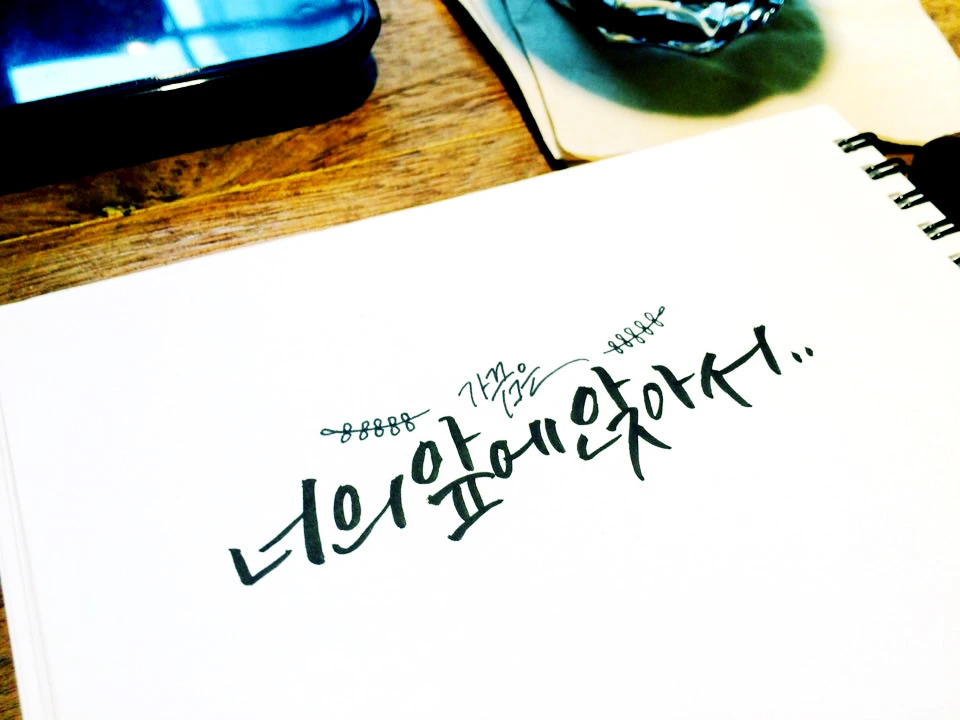 가끔은
너의 앞에 앉아서..